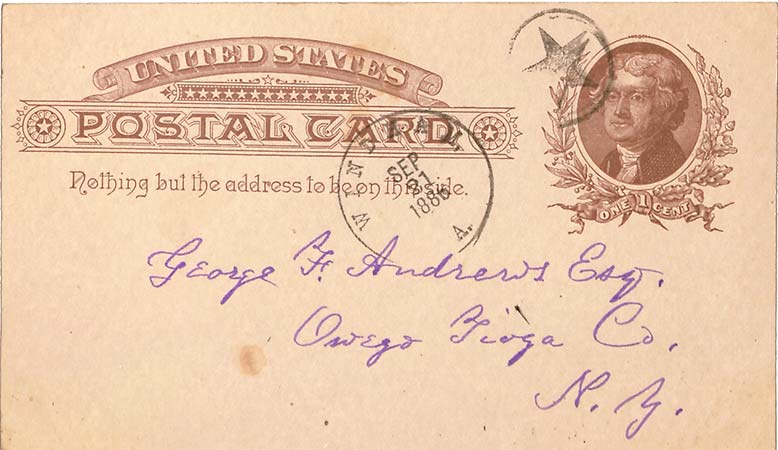 UNITED STATES
POSTAL CARD
Nothing but the address to be on this side.
SEP
1886
A.
ONE 1 CENT
George F. Andrews Esq.
Owego Tioga Co.
N. Y.